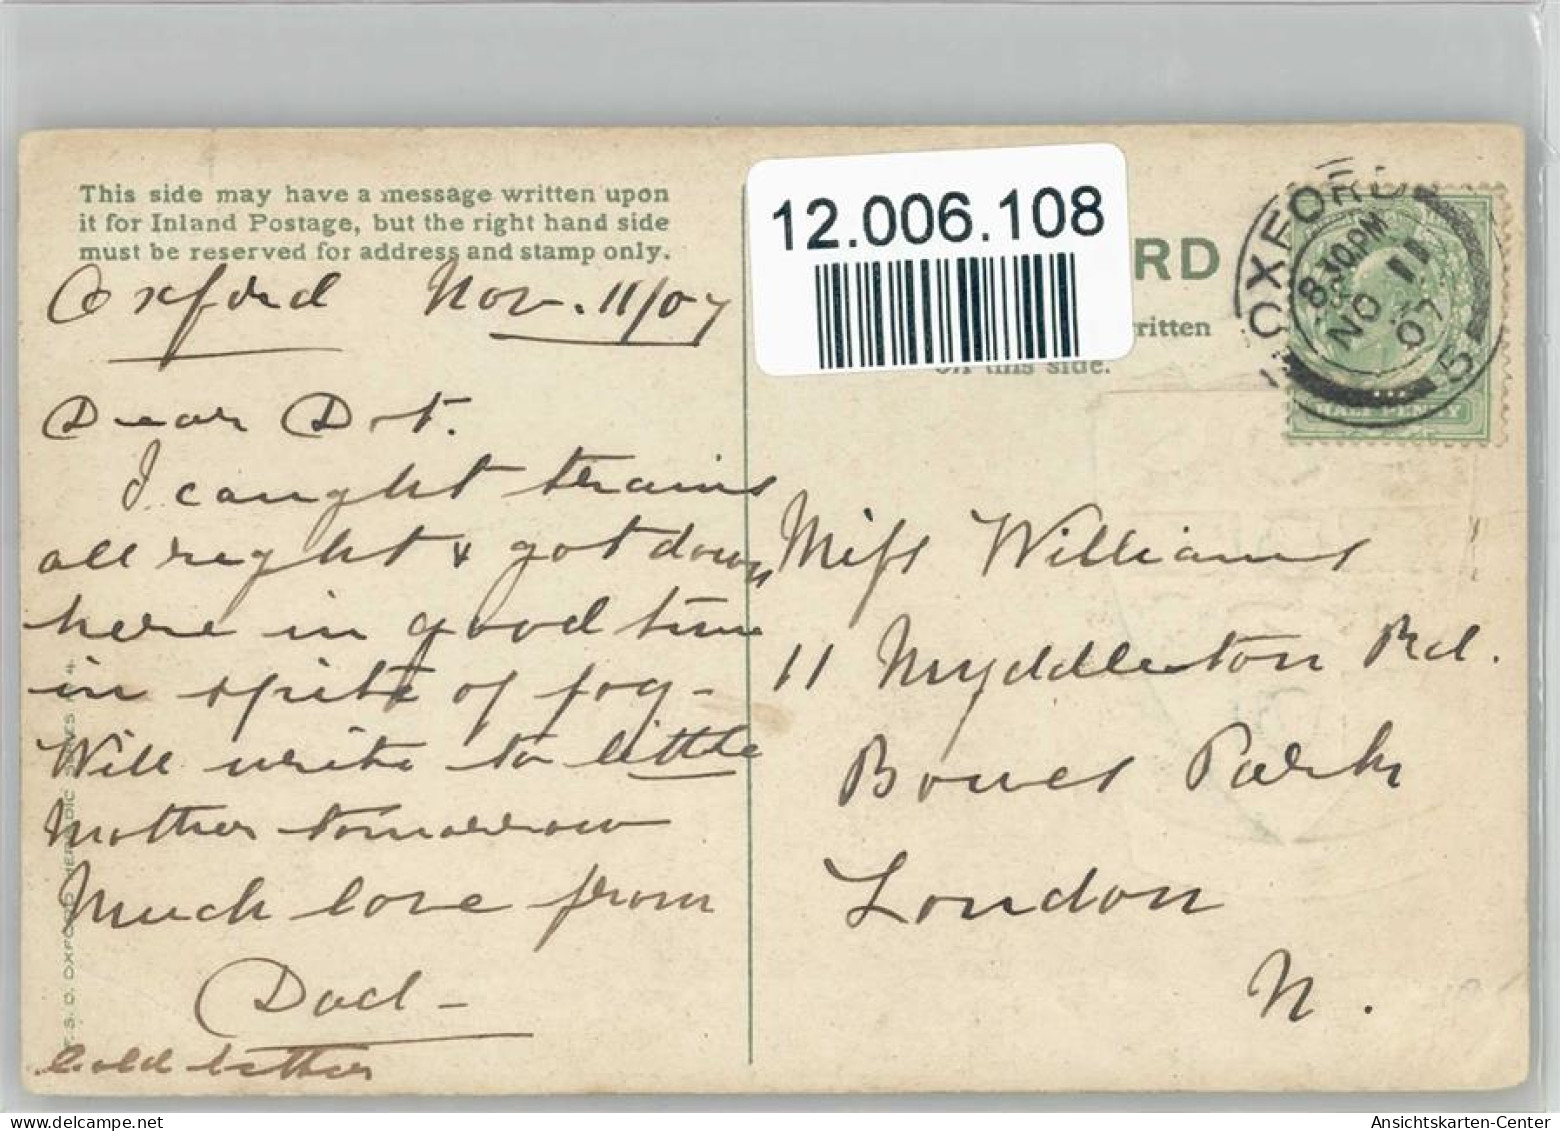 This side may have a message written upon
it for Inland Postage, but the right hand side
must be reserved for address and stamp only.
Oxford Nov. 11/07
Dear Dot.
I caught trains
all right & got down
here in good time
in spite of fog -
Will write to little
Mother tomorrow
Much love from
Dad -
Cold better
12.006.108
RD
ritten
on this side.
OXFORD
8.30PM
NO 11
07
5
HALFPENNY
Miss Williams
11 Myddleton Rd.
Bowes Park
London
N.
Ansichtskarten-Center